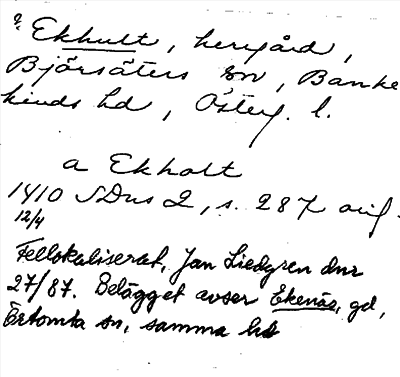 ? Ekhult, herrgård,
Björsäters sn, Banke-
kinds hd, Österg. l.
a Ekholt
1410 SDns 2, s. 287 orig.
12/4
Fellokaliserat, Jan Liedgren dnr
27/87. Belägget avser Ekenäs, gd,
Örtomta sn, samma hd